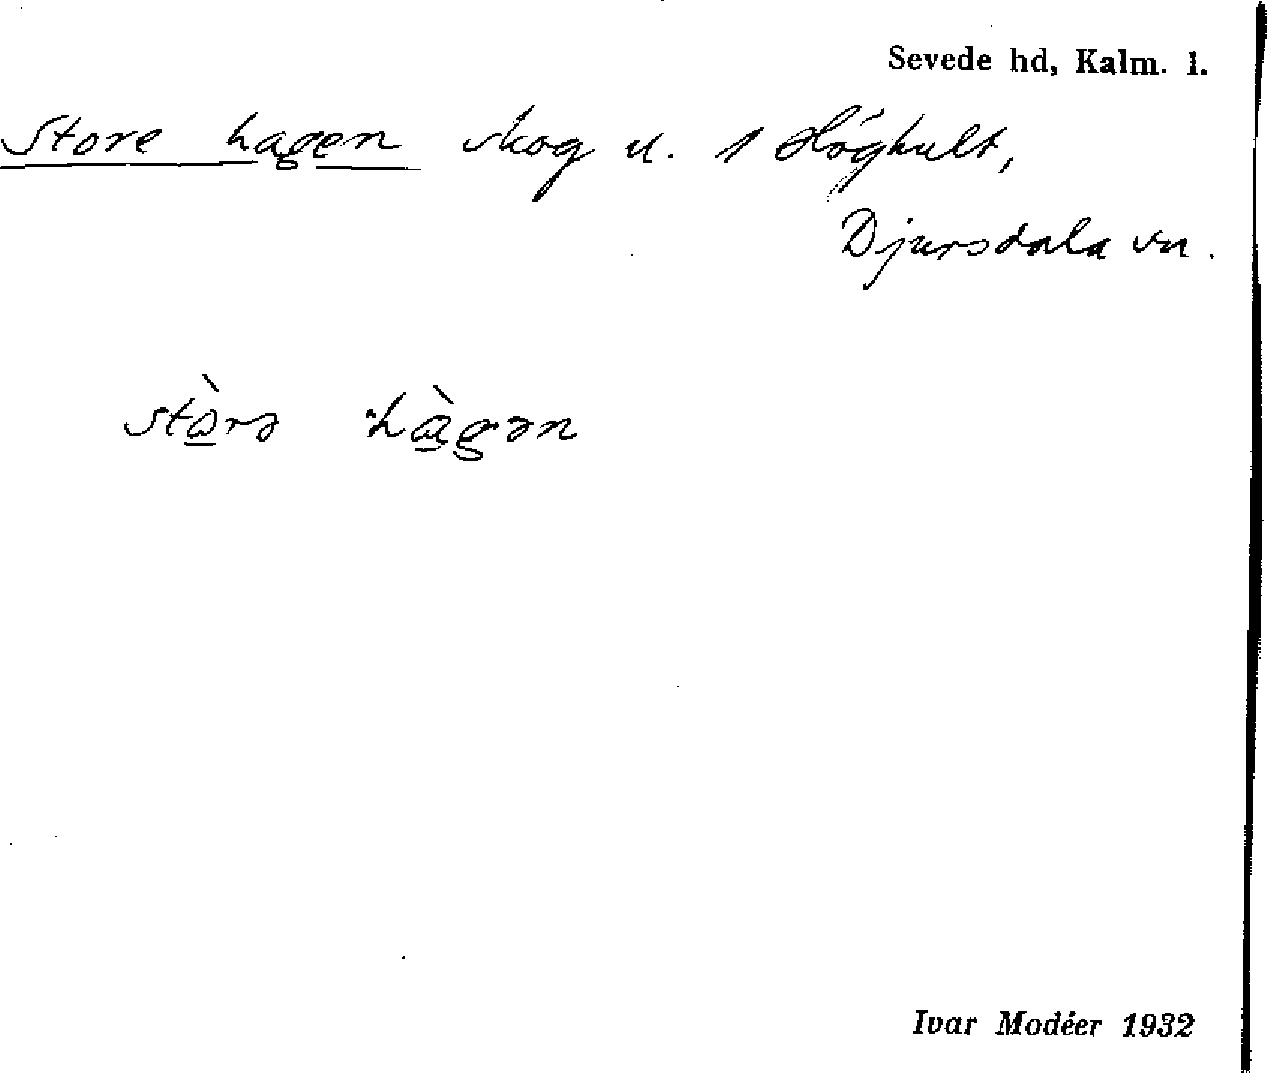 Sevede hd, Kalm. l.
Store hagen skog u. 1 Höghult,
Djursdala sn.
stòrə hàgən
Ivar Modéer 1932